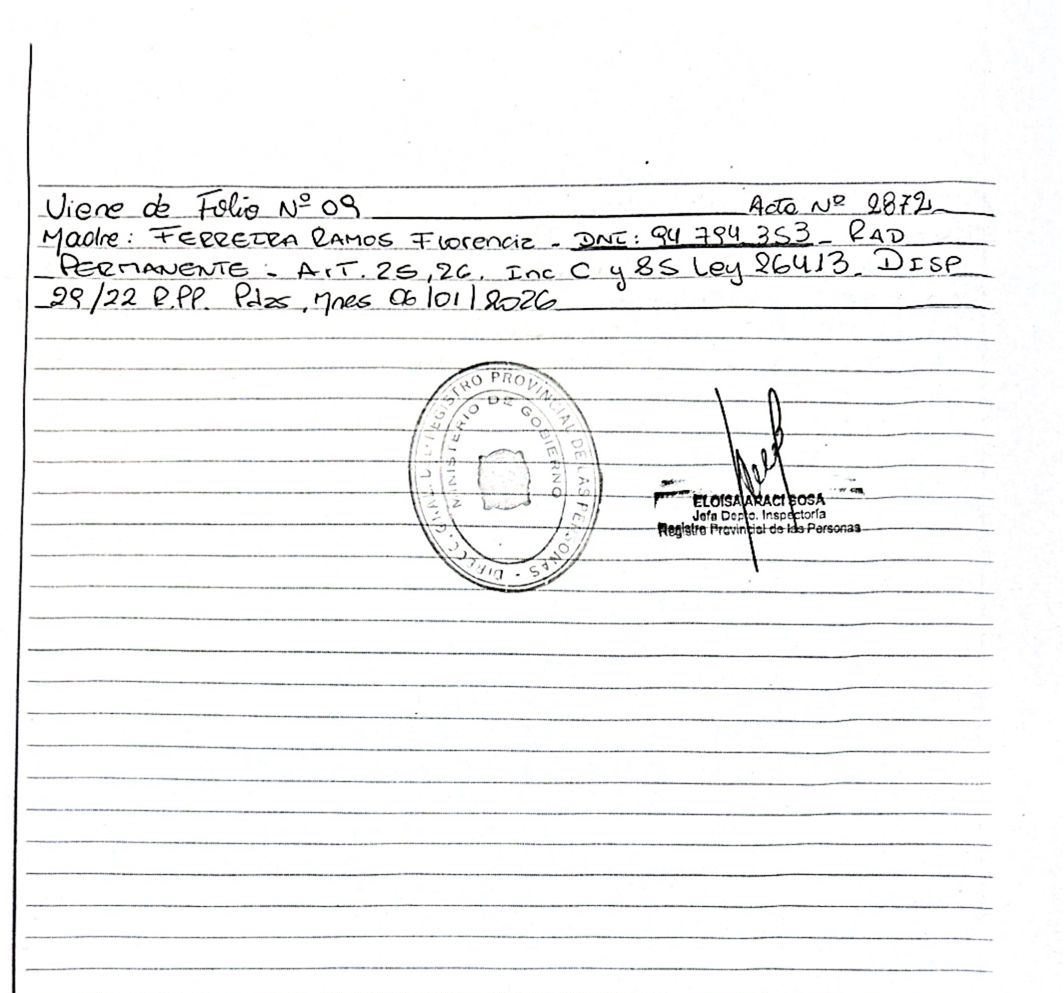 Viene de Folio Nº 09 Acta Nº 2872
Madre: FERREIRA RAMOS Florencia - DNI: 94 794 353 - RAD
PERMANENTE - Art. 25, 26. Inc C y 85 Ley 26413. DISP
29/22 R.P.P. Pdas, Mnes 06/01/2026
DIRECC. GRAL. DEL REGISTRO PROVINCIAL DE LAS PERSONAS -
MINISTERIO DE GOBIERNO
ELOISA ARACI SOSA
Jefa Depto. Inspectoría
Registro Provincial de las Personas